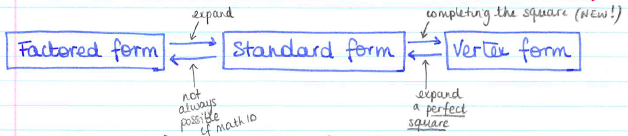 expand
completing the square (NEW!)
Factored form
Standard form
Vertex form
not
always
possible
if math 10
expand
a perfect
square